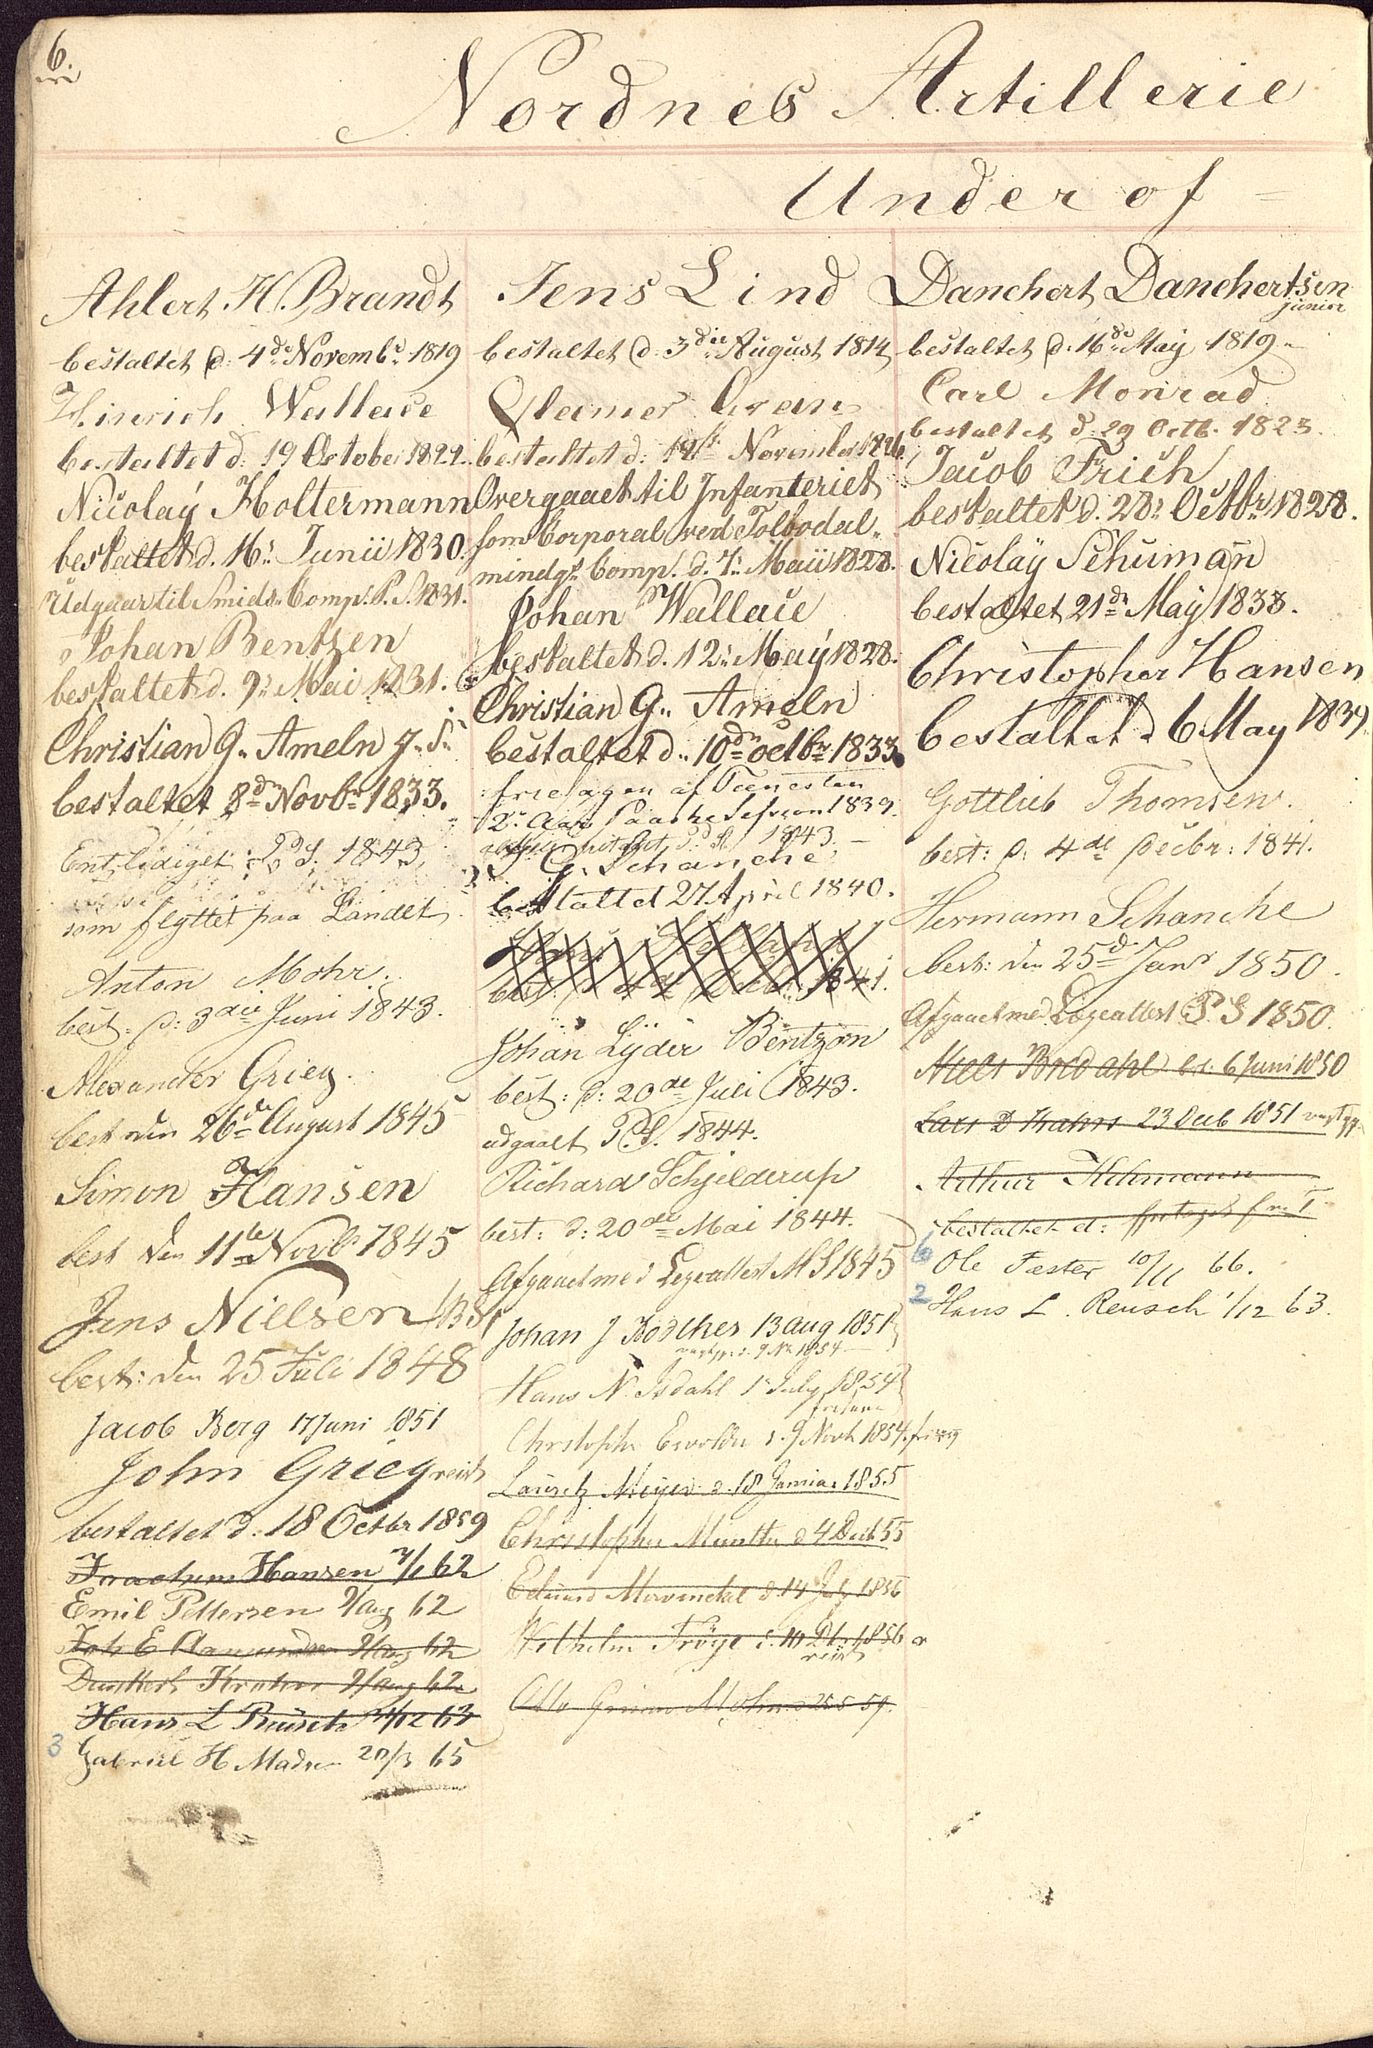 6.
Nordnes Artillerie
Underof=
Ahlert H. Brandt
bestaltet d: 4de Novembr 1819
Hinrich Wallace
bestaltet d: 19 October 1822.
Nicolaÿ Holtermann
bestaltet d. 16: Junii 1830.
Udgaaer til Smids Comp. P. S. 1831.
Johan Bentzen
bestaltet d. 9: Mai 1831.
Christian G. Ameln J. S.
bestaltet 8de Novbr 1833.
Entlediget P. S. 1843,
som flyttet paa Landet
Anton Mohr.
best. d: 3die Juni 1843.
Alexander Grieg.
best den 26de August 1845
Simon Hansen
best den 11te Novbr 1845
Jens Nielsen
best: den 25 Juli 1848
Jacob Berg 17 Juni 1851
John Grieg reist
bestaltet d: 18 Octbr 1859
Joachum Hansen 7/1 62
Emil Pettersen 9/Aug 62
Joh E Aamundsen 9/Aug 62
Dankert Krohn 9/aug 62
Hans L Reusch 1/12 63
3 Gabriel H Madsen 20/3 65
Jens Lind
bestaltet d: 3die August 1814
Gran
bestaltet d: 14de November 1826
Overgaaet til Infanteriet
som Corporal ved Tolbodal-
mindgs Comp. d. 7: Maii 1828.
Johan Wallace
bestaltet d. 12: Maÿ 1828.
Christian G. Ameln
bestaltet d. 10de octbr 1833.
fritagen af Tienesten
2: Aar Paaske Session 1839.
1843
G. Schanche
bestaltet 27 April 1840.
best: d 4de 1841.
Johan Lÿder Bentzon
best: d: 20de Juli 1843.
udgaaet P. S. 1844.
Richard Schjelderup
best: d: 20de Mai 1844.
Afgaaet med Lægeattest M S 1845
Johan J Bødtker 13 aug 1851
9 Nv 1854
Hans N. Isdahl 1 July 1854
Christopher Ewoldsen d. 9 Novbr 1854.
Lauritz Meyer d. 18 Januar 1855
Christopher Munthe d 4 Decb 55
Eduard Mowinckel d 14 July 1856
Wilhelm Frøge d. 10 1856
reist
Otto Grieme Mohn 25 5 59.
Danchert Danchertsen
junior
bestaltet d. 16de Maÿ 1819
Carl Monrad
bestaltet d. 29 Octb. 1823.
Jacob Frich
bestaltet d. 28: Octbr 1828.
Nicolaÿ Schuman̄
bestaltet 21de Maÿ 1838.
Christopher Hansen
bestaltet d 6 May 1839
Gottlieb Thomsen.
best: d: 4de Decbr: 1841.
Hermann Schanche
best: den 25de Janr 1850.
Afgaaet med Lægeattest P. S 1850.
Niels Boldahl d: 6 Juni 1850
Lars D Krahrs 23 Decb 1851
Arthur Ihlmann
bestaltet d:
6 Ole Fæster 10/11 66.
2 Hans L. Reusch 1/12 63.